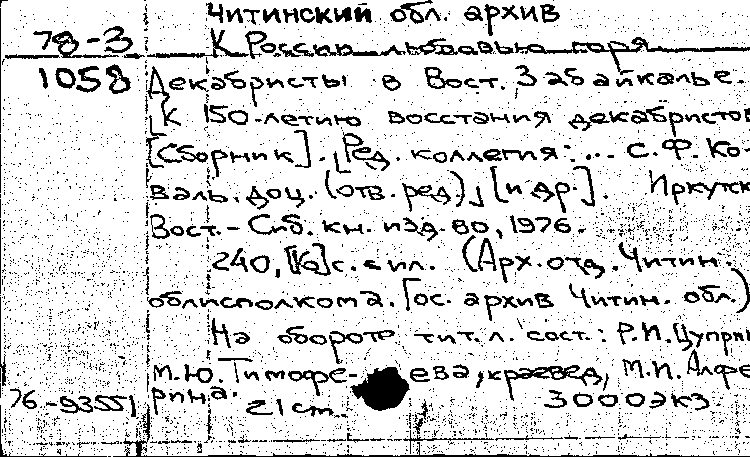 Читинский обл. архив
78-3 К России любовью горя
1058 Декабристы в Вост. Забайкалье.
[К 150-летию восстания декабристов
[Сборник]. [Ред. коллегия: ... С. Ф. Ко-
валь. доц. (отв. ред), [и др.]. Иркутск
Вост.-Сиб. кн. изд-во, 1976.
240, с. с ил. (Арх. отд. Читин.
облисполкома. Гос. архив Читин. обл.)
На обороте тит. л. сост.: Р. И. Цуприк
М. Ю. Тимофе- ева, краевед, М. И. Алфе
рина.
76-93551 21 cm. 3000 экз.